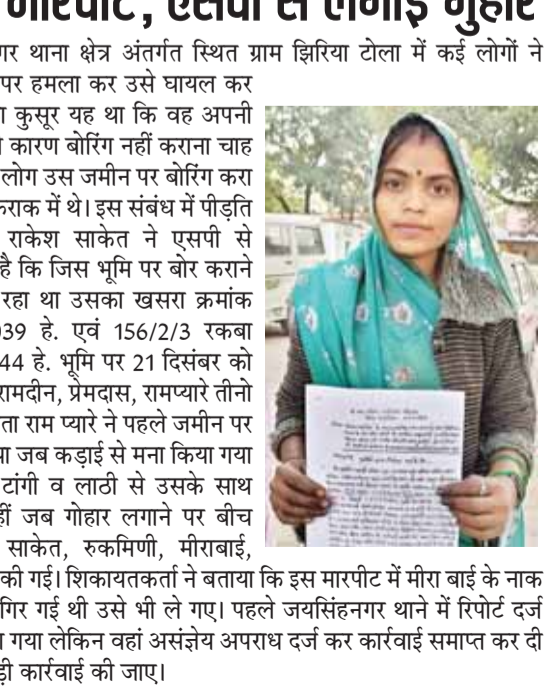 मारपीट, एसपी से लगाई गुहार
थाना क्षेत्र अंतर्गत स्थित ग्राम झिरिया टोला में कई लोगों ने
पर हमला कर उसे घायल कर
कुसूर यह था कि वह अपनी
कारण बोरिंग नहीं कराना चाह
लोग उस जमीन पर बोरिंग करा
में थे। इस संबंध में पीड़ति
राकेश साकेत ने एसपी से
है कि जिस भूमि पर बोर कराने
रहा था उसका खसरा क्रमांक
39 हे. एवं 156/2/3 रकबा
44 हे. भूमि पर 21 दिसंबर को
रामदीन, प्रेमदास, रामप्यारे तीनो
राम प्यारे ने पहले जमीन पर
जब कड़ाई से मना किया गया
टांगी व लाठी से उसके साथ
जब गोहार लगाने पर बीच
साकेत, रुकमिणी, मीराबाई,
की गई। शिकायतकर्ता ने बताया कि इस मारपीट में मीरा बाई के नाक
गिर गई थी उसे भी ले गए। पहले जयसिंहनगर थाने में रिपोर्ट दर्ज
गया लेकिन वहां असंज्ञेय अपराध दर्ज कर कार्रवाई समाप्त कर दी
कार्रवाई की जाए।